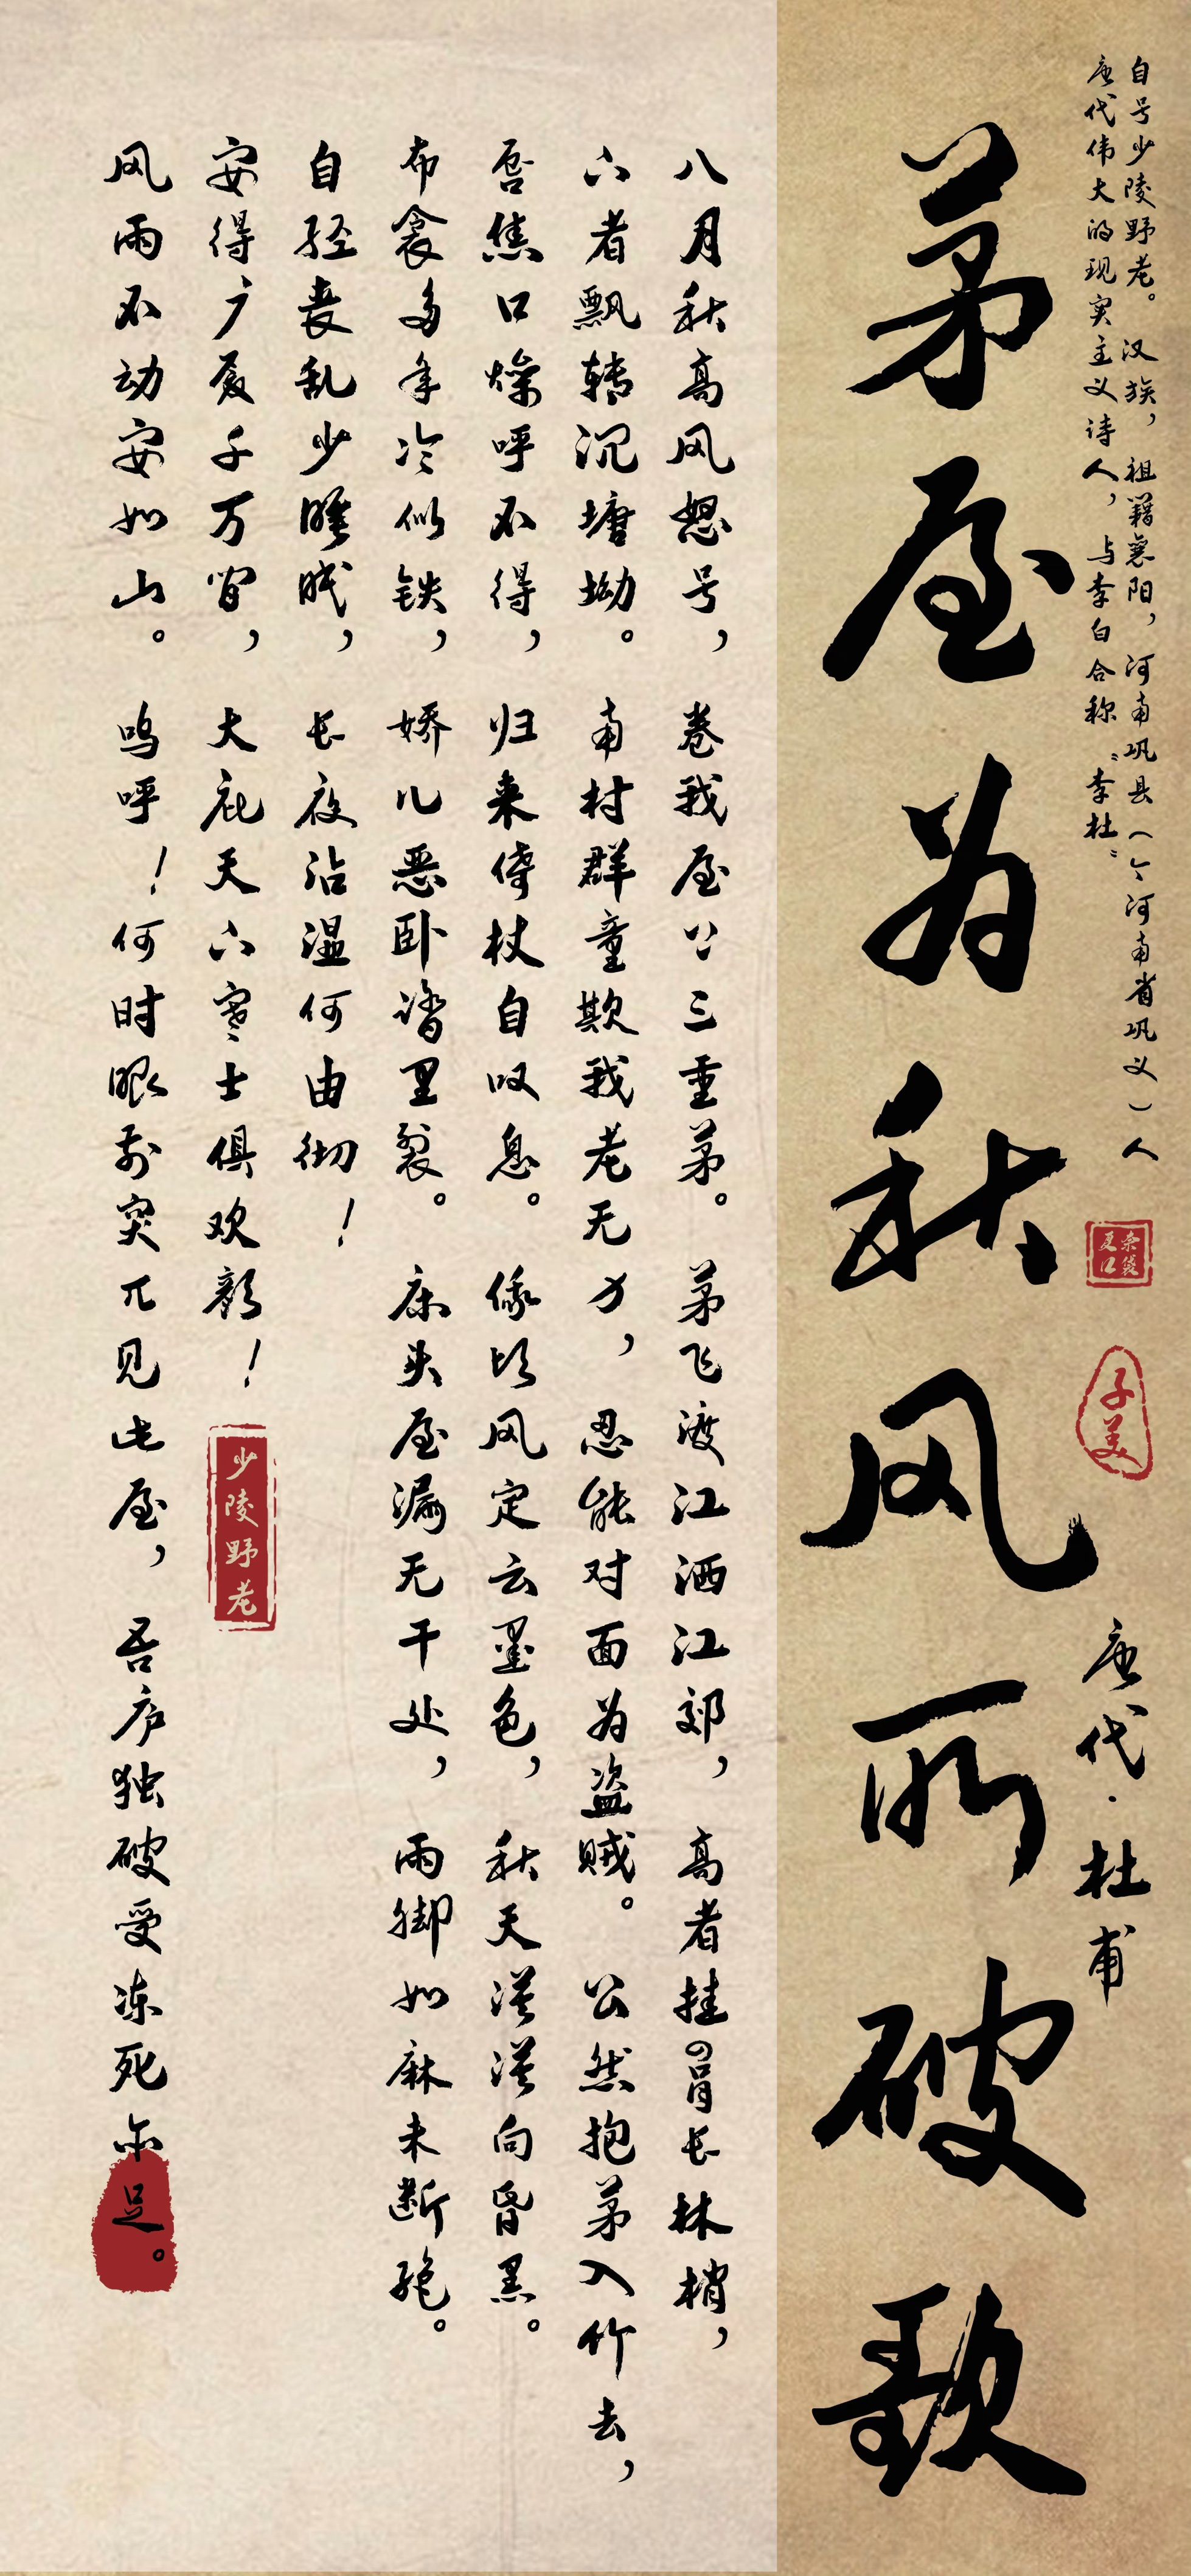 自号少陵野老。汉族，祖籍襄阳，河南巩县（今河南省巩义）人
唐代伟大的现实主义诗人，与李白合称“李杜”
子美
唐代·杜甫
茅屋为秋风所破歌
八月秋高风怒号，卷我屋上三重茅。茅飞渡江洒江郊，高者挂罥长林梢，
下者飘转沉塘坳。南村群童欺我老无力，忍能对面为盗贼。公然抱茅入竹去，
唇焦口燥呼不得，归来倚杖自叹息。俄顷风定云墨色，秋天漠漠向昏黑。
布衾多年冷似铁，娇儿恶卧踏里裂。床头屋漏无干处，雨脚如麻未断绝。
自经丧乱少睡眠，长夜沾湿何由彻！
安得广厦千万间，大庇天下寒士俱欢颜！
少陵野老
风雨不动安如山。呜呼！何时眼前突兀见此屋，吾庐独破受冻死亦足。